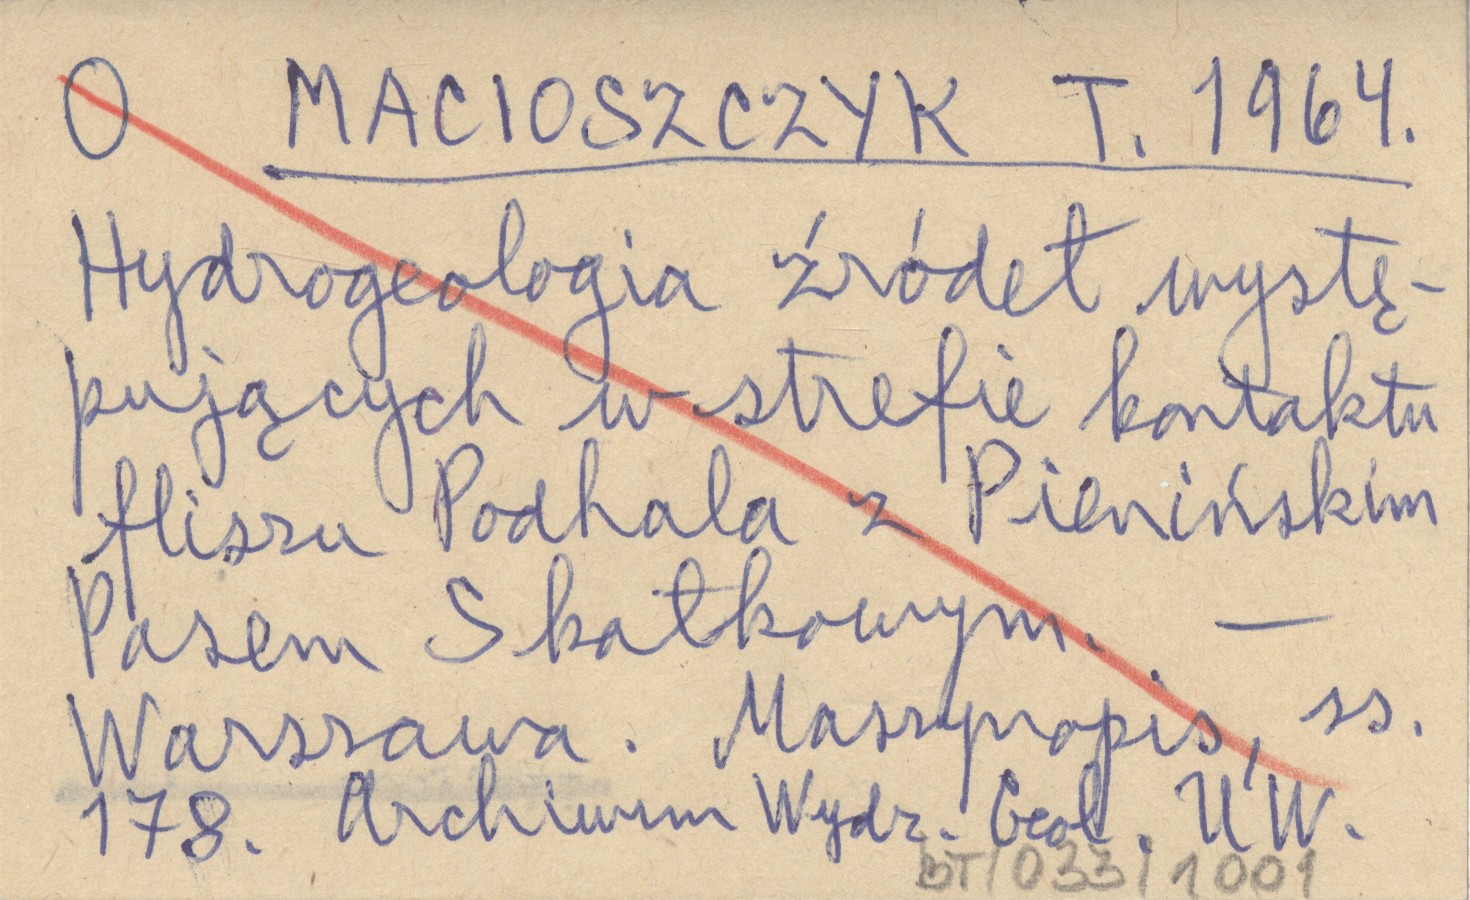 O MACIOSZCZYK T. 1964.
Hydrogeologia źródeł wystę-
pujących w strefie kontaktu
fliszu Podhala z Pienińskim
Pasem Skałkowym. —
Warszawa. Maszynopis, ss.
178. Archiwum Wydz. Geol. UW.
BT/033/1001